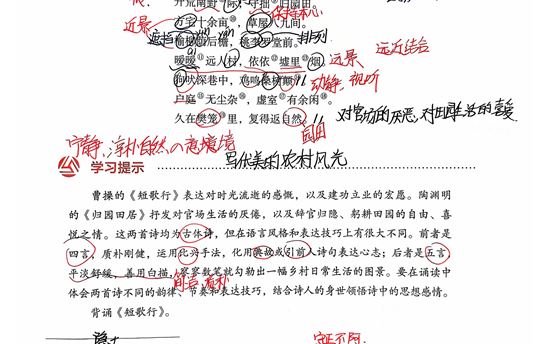 开荒南野际，守拙归园田。
保持本心
近景
方宅十余亩，草屋八九间。
榆柳荫后檐，桃李罗堂前。
遮挡
排列
暧暧远人村，依依墟里烟。
远景
远近结合
狗吠深巷中，鸡鸣桑树颠。
动静、视听
户庭无尘杂，虚室有余闲。
久在樊笼里，复得返自然。
对官场的厌恶，对田园生活的喜爱
田园
宁静、淳朴自然
写优美的农村风光
学习提示
曹操的《短歌行》表达对时光流逝的感慨，以及建功立业的宏愿。陶渊明
的《归园田居》抒发对官场生活的厌倦，以及辞官归隐、躬耕田园的自由、喜
悦之情。这两首诗均为古体诗，但在语言风格和表达技巧上有很大不同。前者是
四言，质朴刚健，运用比兴手法，化用典故或引前人诗句表达心志；后者是五言，
平淡舒缓，善用白描，寥寥数笔就勾勒出一幅乡村日常生活的图景。要在诵读中
体会两首诗不同的韵律、节奏和表达技巧，结合诗人的身世领悟诗中的思想感情。
背诵《短歌行》。